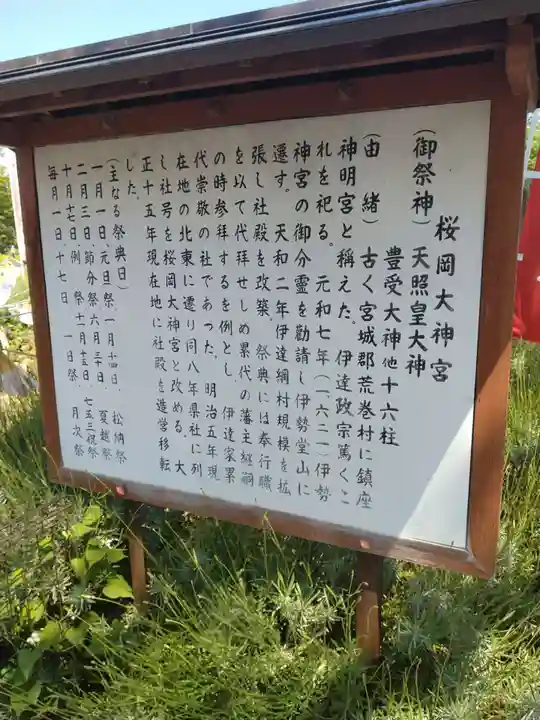 桜岡大神宮
(御祭神)天照皇大神
豊受大神他十六柱
(由 緒)古く宮城郡荒巻村に鎮座
神明宮と稱えた。伊達政宗篤くこ
れを祀る。元和七年(一六二一)伊勢
神宮の御分霊を勧請し伊勢堂山に
遷す。天和二年伊達綱村規模を拡
張し社殿を改築。祭典には奉行職
を以て代拝せしめ累代の藩主継嗣
の時参拝するを例とし、伊達家累
代崇敬の社であった。明治五年現
在地の北東に遷り同八年県社に列
し社号を桜岡大神宮と改める。大
正十五年現在地に社殿を造営移転
した。
(主なる祭典日)
一月一日、元旦祭、一月十四日、松納祭
二月三日、節分祭、六月三十日、夏越祭
十月十七日、例 祭、十一月十五日、七五三祝祭
毎月一日、十七日 一日祭、月次祭